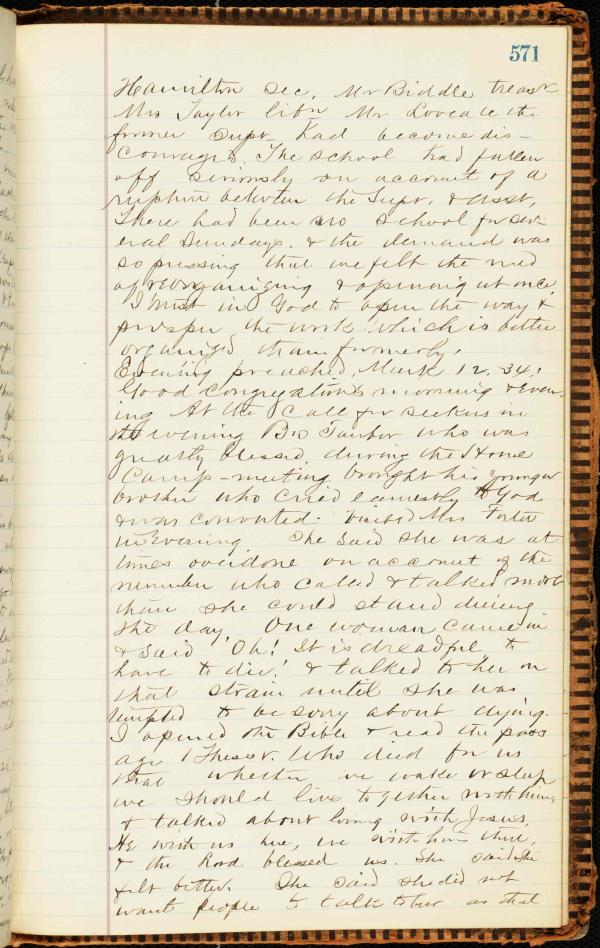 571
Hamilton Sec, Mr Biddle treasr
Mrs Taylor libn Mr Loveale the
former Supt had become dis-
couraged. The school had fallen
off seriously on account of a
rupture between the Supt. & asst.
There had been no school for sev
eral Sundays, & the demand was
so pressing that we felt the need
of reorganizing & opening at once.
I trust in God to open the way &
prosper the work which is better
organized than formerly.
Evening preached, Mark 12. 34.
Good congregations morning & even-
ing At the call for seekers in
the evening Bro who was
greatly blessed, during the Home
Camp-meeting brought his younger
brother who cried earnestly to God
& was converted. Visited Mrs Foster
in Evening She said she was at
times overdone on account of the
number who called & talked more
than she could stand during
the day One woman came in
& said 'Oh! It is dreadful to
have to die! & talked to her on
that strain until she was
tempted to be sorry about dying.
I opened the Bible & read the pass
age 1 Thess v. Who died for us
that whether we wake or sleep
we should live together with him,
& talked about living with Jesus,
He with us here, we with him there,
& the Lord blessed us. She said she
felt better. She said she did not
want people to talk to her as that